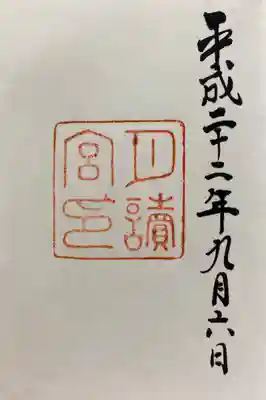 平成二十二年九月六日
月讀
宮印